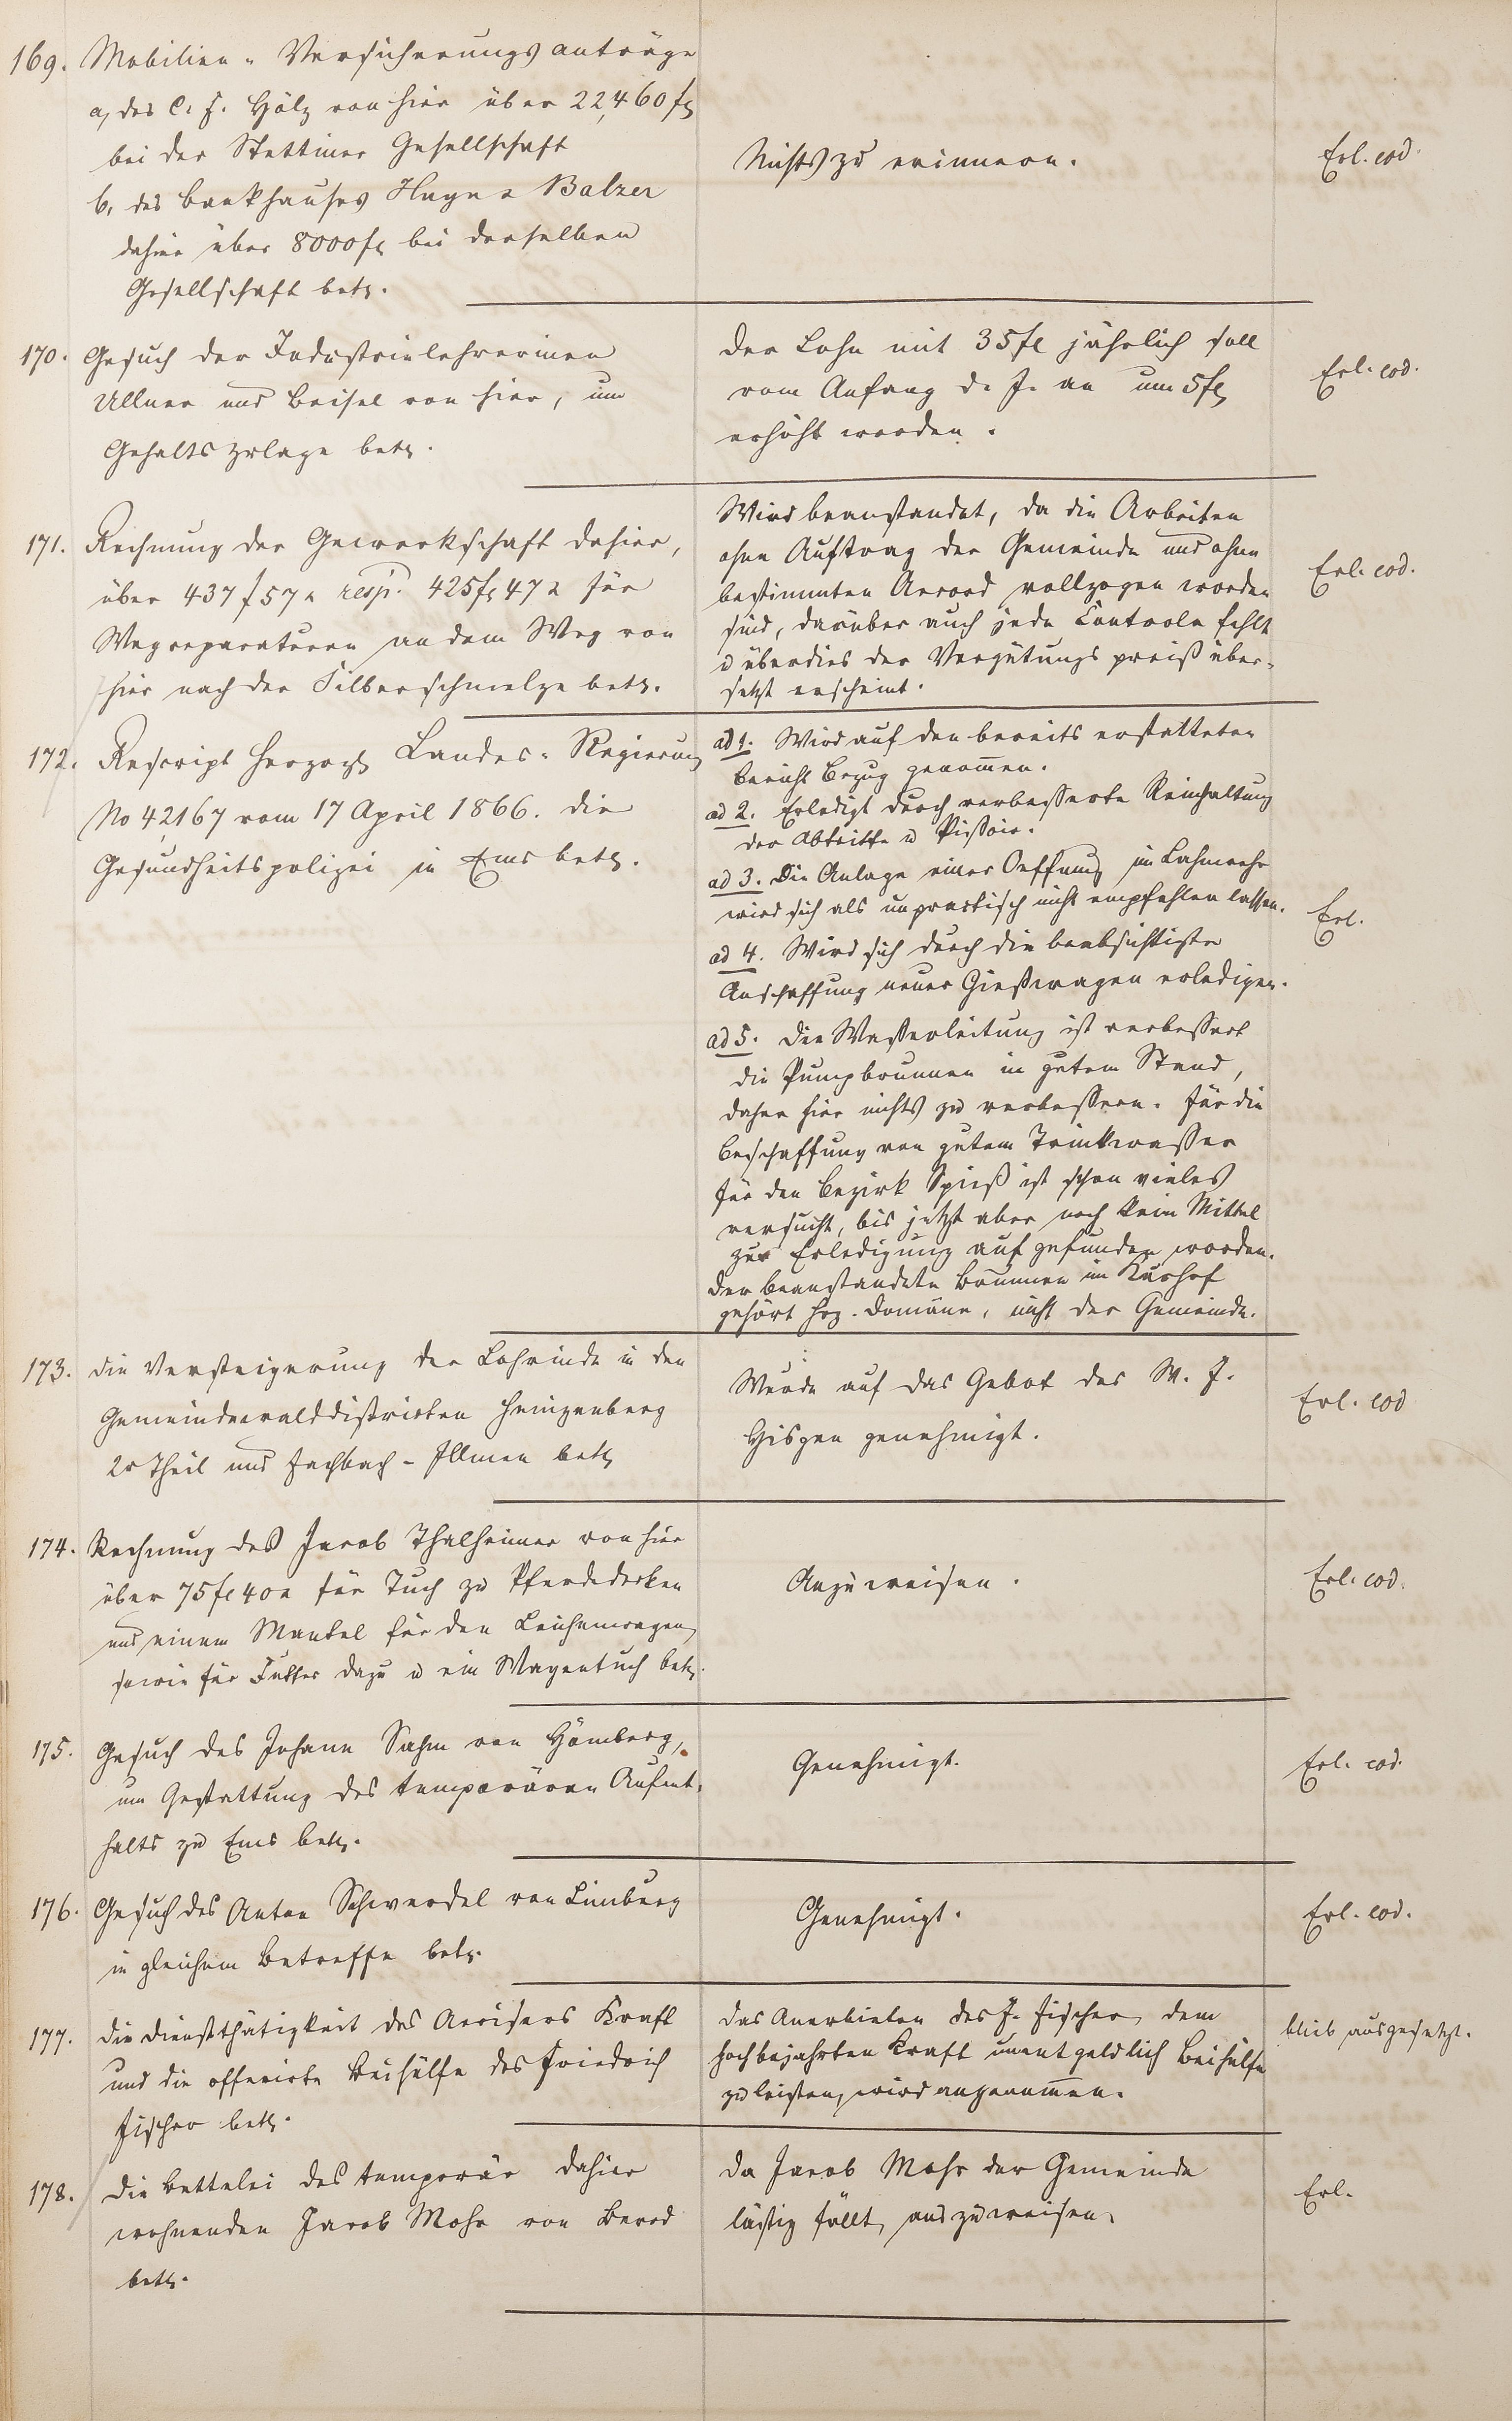 169. Mobilien- Versicherungsanträge
a, des C. F. Hölz von hier über 22,460 fl
bei der Stettiner Gesellschaft
b, des Bankhauses Huyn & Balzer
dahier über 8000 fl bei derselben
Gesellschaft betr.
Nichts zu erinnern.
Erl. eod.
170. Gesuch der Industrielehrerinnen
Ullner und Beisel von hier, um
Gehaltszulage betr.
Der Lohn mit 35 fl jährlich soll
vom Anfang d. J. an um 5 fl
erhöht werden.
Erl. eod.
171. Rechnung der Gewerkschaft dahier,
über 437 f 57 x resp. 425 fl 47 x für
Wegreparaturen an dem Weg von
hier nach der Silberschmelze betr.
Wird beanstandet, da die Arbeiten
ohne Auftrag der Gemeinde und ohne
bestimmten Accord vollzogen worden
sind, darüber auch jede Controle fehlt
u überdies der Vergütungspreiß über-
setzt erscheint.
Erl. eod.
172. Rescript Herzogl Landes- Regierung
No 42,167 vom 17 April 1866. die
Gesundheitspolizei in Ems betr.
ad 1. Wird auf den bereits erstatteten
Bericht Bezug genommen.
ad 2. Erledigt durch verbesserte Reinhaltung
der Abtritte u Pissoir.
ad 3. Die Anlage einer Oeffnung im Lahnwehr
wird sich als unpractisch nicht empfehlen lassen.
ad 4. Wird sich durch die beabsichtigte
Anschaffung neuer Gießwagen erledigen.
ad 5. Die Wasserleitung ist verbessert
die Pumpbrunnen in gutem Stand,
daher hier nichts zu verbessern. Für die
Beschaffung von gutem Trinkwasser
für den Bezirk Spieß ist schon vieles
versucht, bis jetzt aber noch kein Mittel
zur Erledigung aufgefunden worden.
Der beanstandete Brunnen im Kurhof
gehört Hzg. Domäne, nicht der Gemeinde.
Erl.
173. Die Versteigerung der Lohrinde in den
Gemeindewalddistricten Heinzenberg
2r Theil und Fachbach - Illmen betr
Wurde auf das Gebot des W. J.
Hisgen genehmigt.
Erl. eod
174. Rechnung des Jacob Thalheimer von hier
über 75 fl 40 x für Tuch zu Pferdedecken
und einem Mantel für den Leichenwagen,
sowie für Futter dazu u ein Wagentuch betr.
Anzuweisen.
Erl. eod.
175. Gesuch des Johann Sahm von Hömberg,
um Gestattung des temporären Aufent-
halts zu Ems betr.
Genehmigt.
Erl. eod.
176. Gesuch des Anton Schwerdel von Limburg
in gleichem Betreffe betr.
Genehmigt.
Erl. eod.
177. Die Dienstthätigkeit des Accisers Kraft
und die offerirte Beihülfe des Friedrich
Fischer betr.
Das Anerbieten des F. Fischer, dem
hochbejahrten Kraft unentgeldlich Beihülfe
zu leisten, wird angenommen.
blieb ausgesetzt.
178. Die Bettelei des temporär dahier
wohnenden Jacob Mohr von Berod
betr.
Da Jacob Mohr der Gemeinde
lästig fällt, auszuweisen.
Erl.